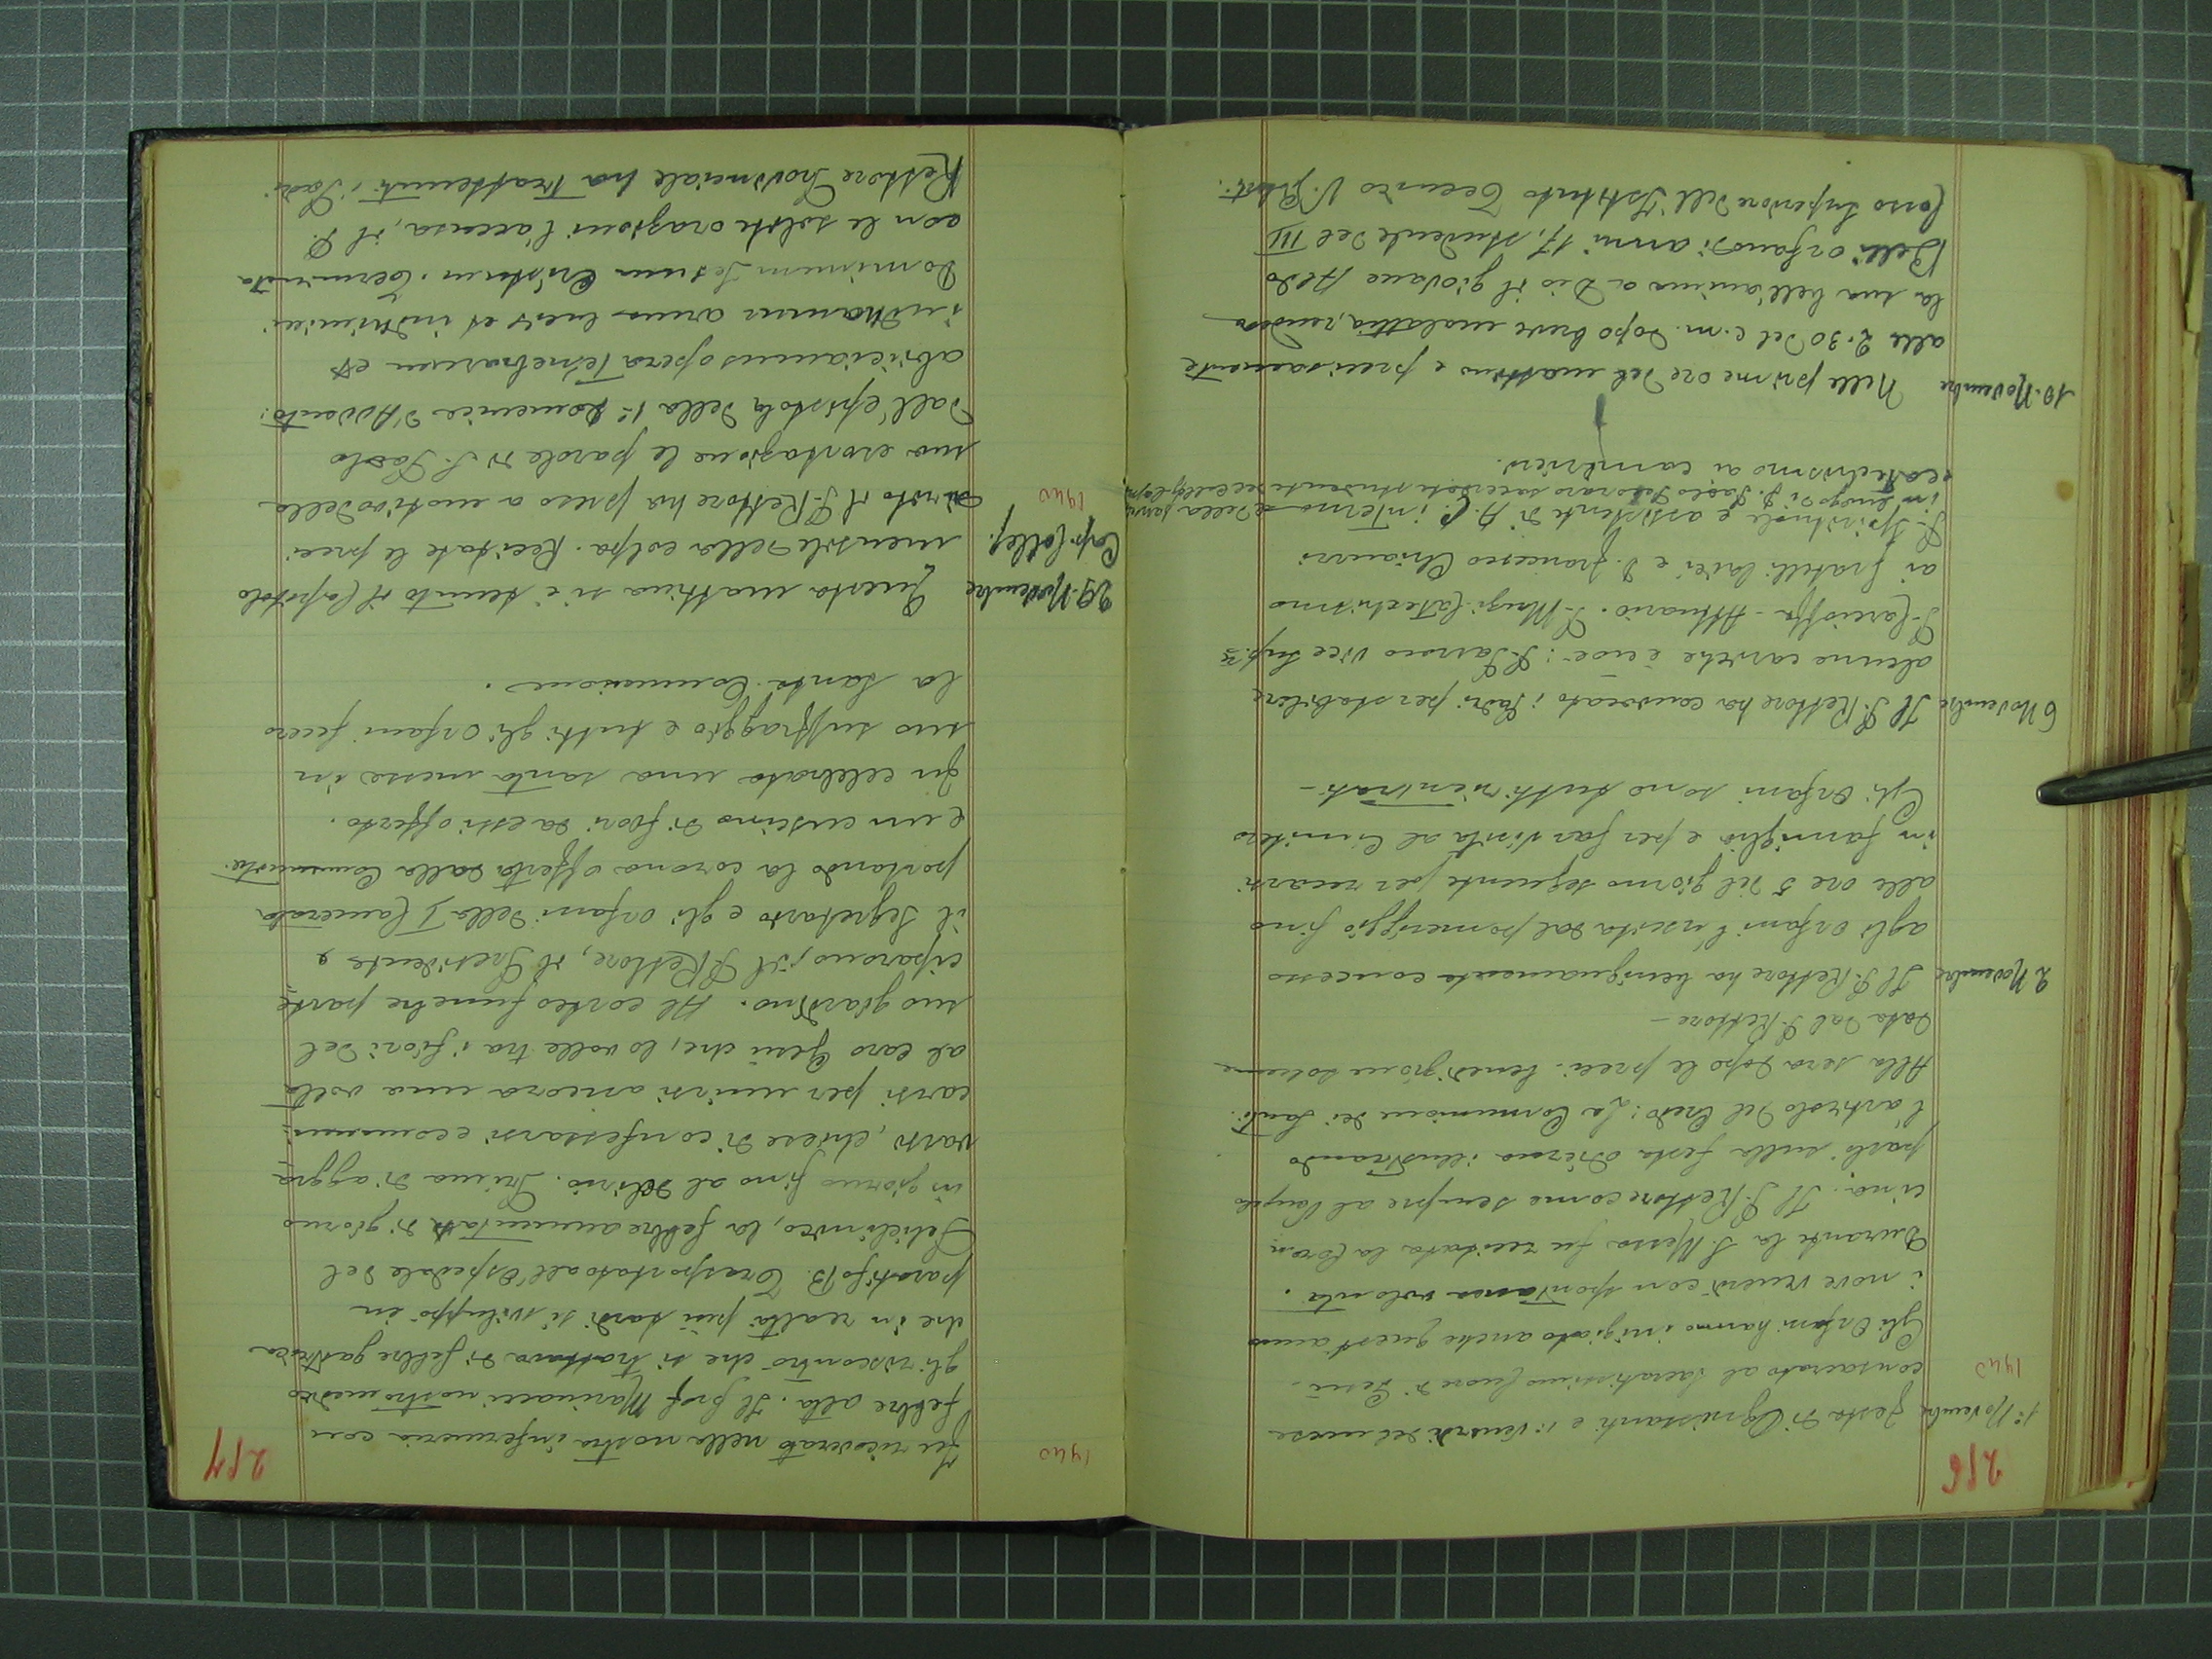 256
1º Novembre Festa di Ognissanti e 1º venerdì del mese
1940 consacrato al Sacratissimo Cuore di Gesù.
Gli Orfani hanno iniziato anche quest'anno
i nove venerdì con spontanea volontà.
Durante la S. Messa fu recitata la Coron
cina. Il P. Rettore come sempre al Vangelo
parlò sulla festa odierna illustrando
l'articolo del Credo: La Comunione dei Santi.
Alla sera dopo le preci benedizione solenne
data dal P. Rettore -
2 Novembre Il P. Rettore ha benignamente concesso
agli Orfani l'uscita dal pomeriggio fino
alle ore 5 del giorno seguente per recarsi
in famiglia e per far visita al Cimitero
Gli Orfani sono tutti rientrati -
6 Novembre Il P. Rettore ha convocato i Padri per stabilire
alcune cariche e cioè: P. Sarocco vice Sup.re
P. - Attuario. P. Catechismo
ai fratelli laici e D. Francesco
P. Spirituale e assistente di A. C. interno e della
in luogo di P. Paolo sacerdote studente
catechismo ai camerieri.
10. Novembre Nelle prime ore del mattino e precisamente
alle 2.30 del c. m. dopo breve malattia, rendeva
la sua bell'anima a Dio il giovane Aldo
Belli orfano di anni 17, studente del III
Corso Superiore dell'Istituto Tecnico
257
1940 Fu ricoverato nella nostra infermeria con
febbre alta. Il prof. Marinacci nostro medico
gli riscontrò che si trattava di febbre gastrica
che in realtà più tardi si sviluppò in
paratifo B. Trasportato all'Ospedale del
Celio, la febbre aumentata di giorno
in giorno fino al delirio. Prima di aggra
varsi, chiese di confessarsi e comuni
carsi per unirsi ancora una volta
al caro Gesù che, lo volle tra i fiori del
suo giardino. Al corteo funebre parte
ciparono, il P. Rettore, il Presidente e
il Segretario e gli orfani della I Camerata
portando la corona offerta dalla Comunità
e un cuscino di fiori da essi offerto.
Fu celebrata una santa messa in
suo suffraggio e tutti gli Orfani fecero
la Santa Comunione.
29. Novembre Questa mattina si è tenuto il Capitolo
Cap. Colleg. mensile della colpa. Recitate le preci
1940 di rito il P. Rettore ha preso a motivo della
sua esortazione le parole di S. Paolo
dall'epistola della 1ª Domenica d'Avvento:
abiiciamus opera tenebrarum et
induamur arma lucis et induimini
Dominum Jesum Cristum. Terminata
con le solite orazioni l'accusa, il P.
Rettore Provinciale ha trattenuti i Padri